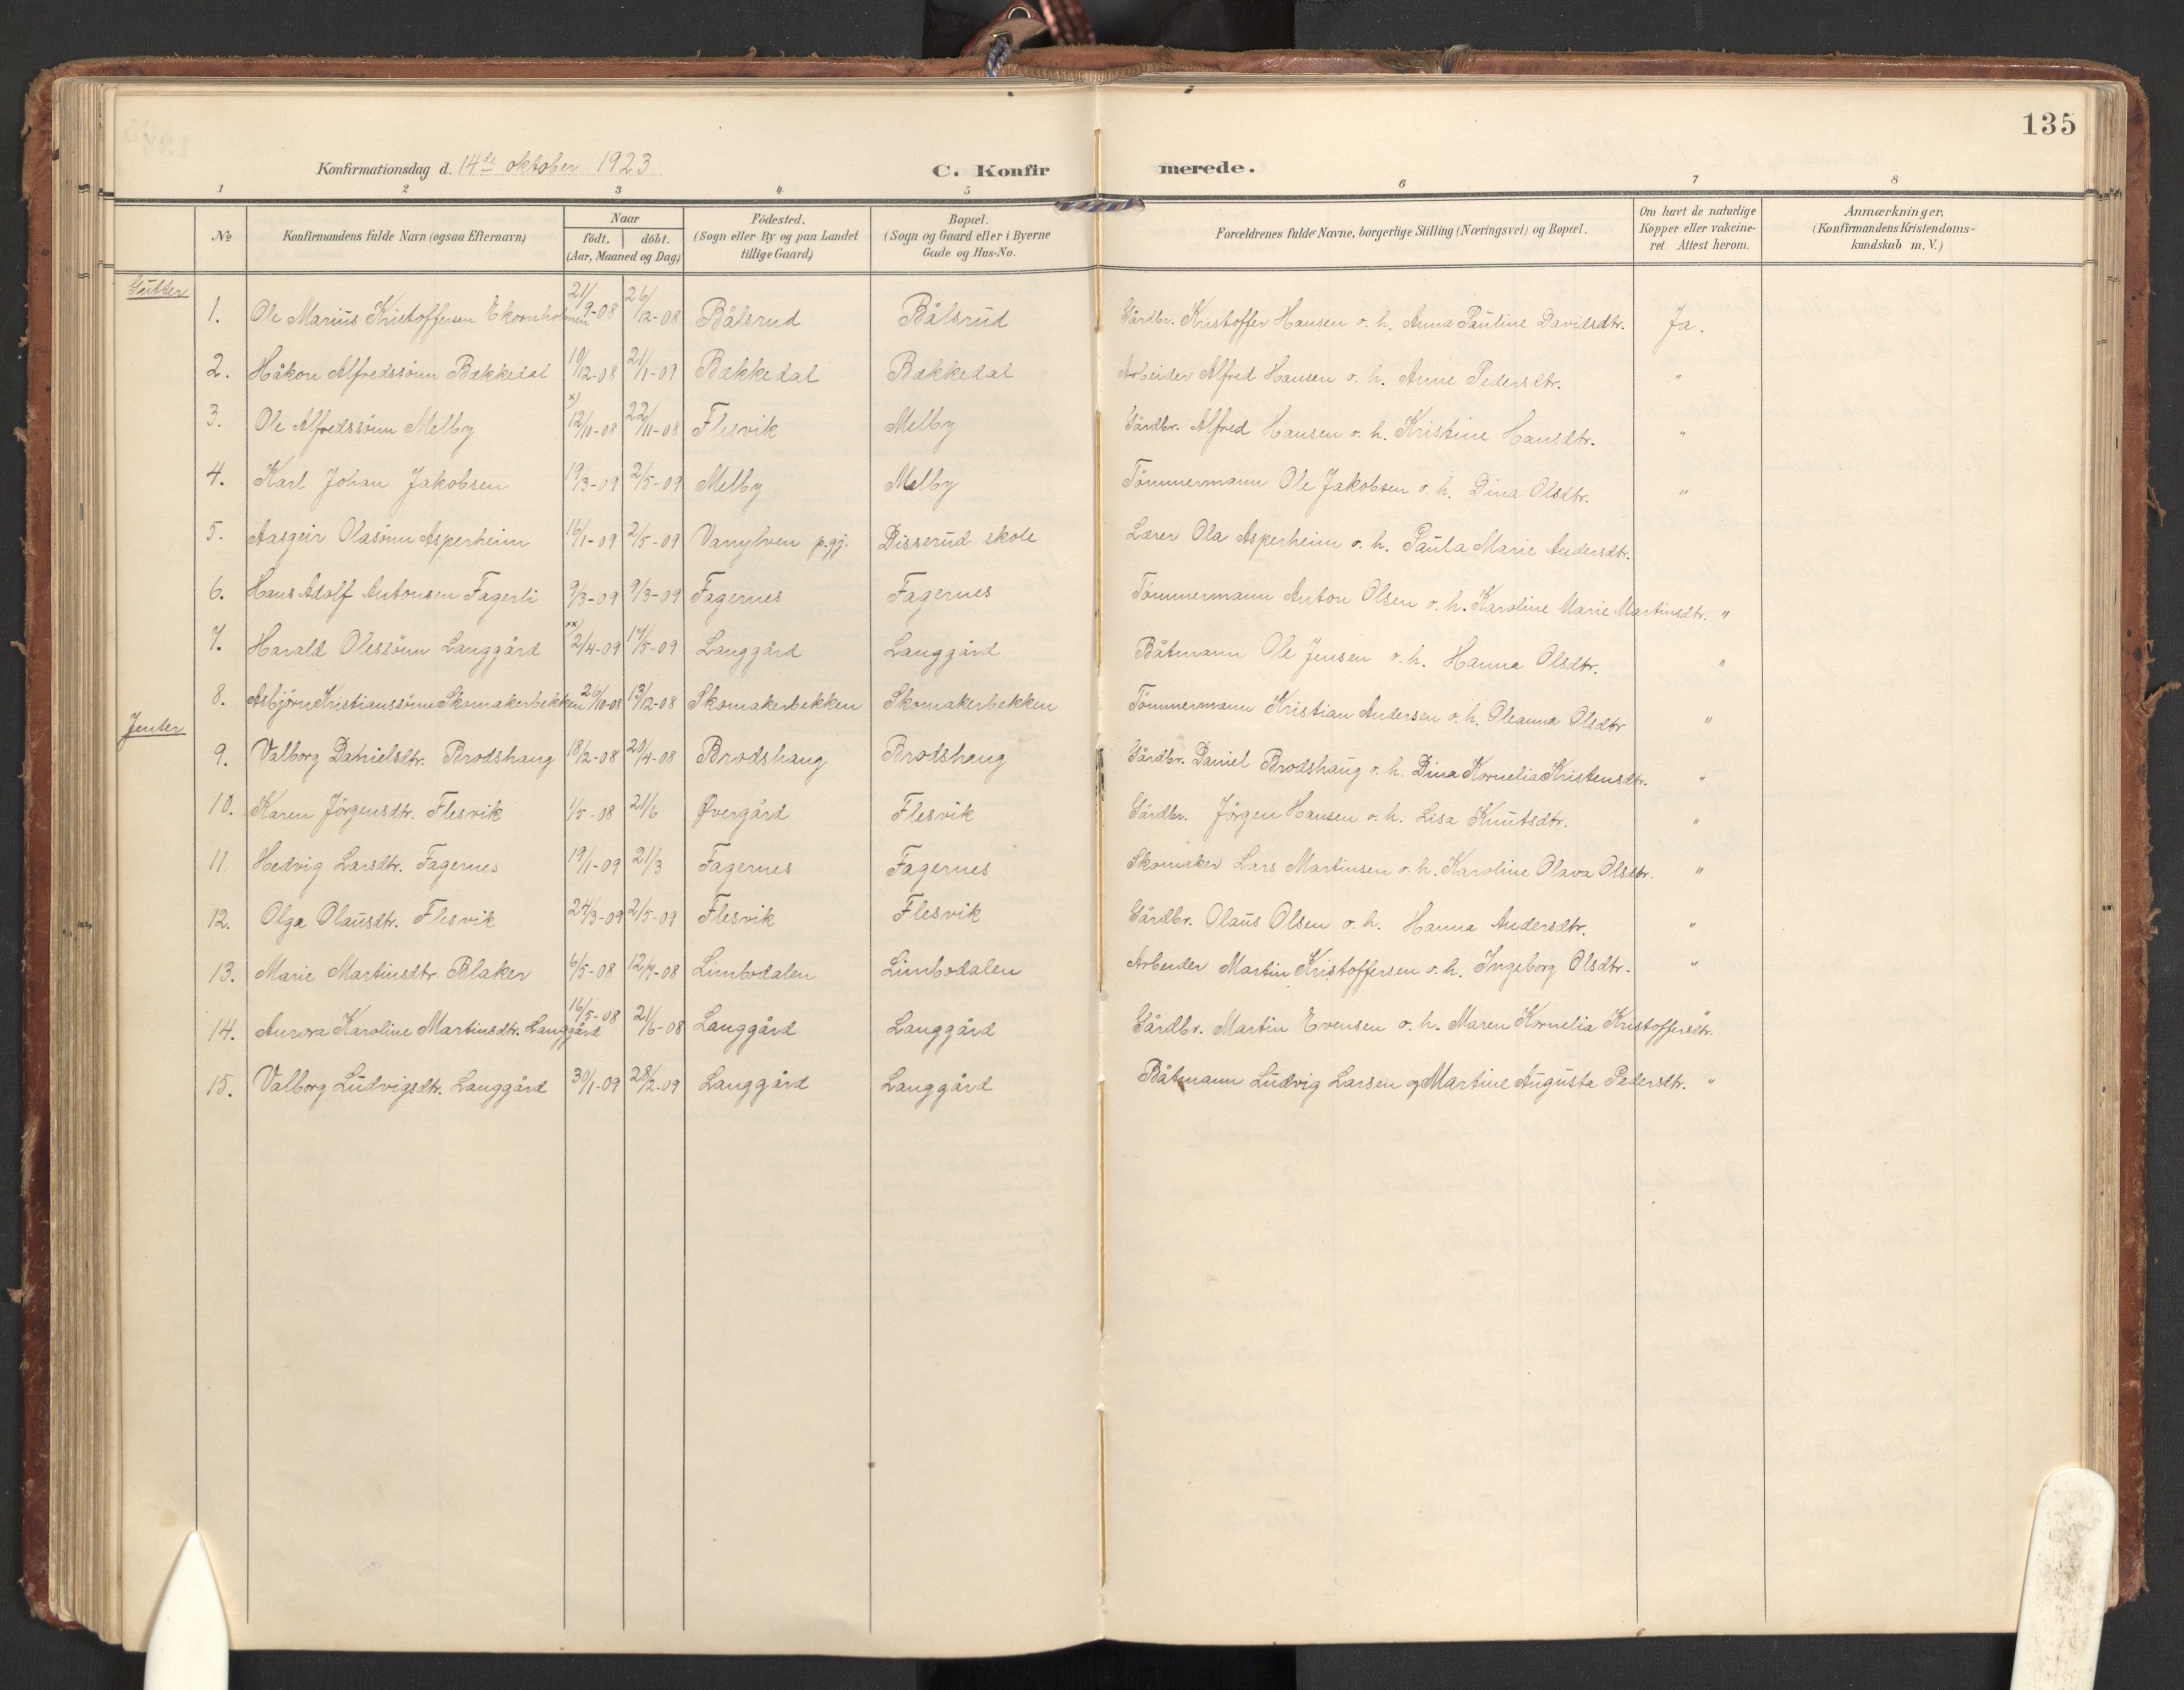 135
Konfirmationsdag d. 14de oktober 1923.
C. Konfirmerede.
1 2 3 4 5 6 7 8
No
Konfirmandens fulde Navn (ogsaa Efternavn)
Naar
födt. | döbt.
(Aar, Maaned og Dag)
Födested.
(Sogn eller By og paa Landet
tillige Gaard)
Bopæl.
(Sogn og Gaard eller i Byerne
Gade og Hus-No.
Forældrenes fulde Navne, borgerlige Stilling (Næringsvei) og Bopæl.
Om havt de naturlige
Kopper eller vakcine-
ret Attest herom.
Anmærkninger,
(Konfirmandens Kristendoms-
kundskab m. V.)
Gutter
1. Ole Marius Kristoffersen Ekornholmen 21/9-08 26/12-08 Bålsrud Bålsrud Gårdbr. Kristoffer Hansen o. h. Anna Pauline Davidsdtr. Ja.
2. Håkon Alfredssønn Bakkedal 10/12-08 21/1-09 Bakkedal Bakkedal Arbeider Alfred Hansen o. h. Anne Pedersdtr. "
3. Ole Alfredssønn Melby x) 12/10-08 22/11-08 Flesvik Melby Gårdbr. Alfred Hansen o. h. Kristine Hansdtr. "
4. Karl Johan Jakobsen 19/3-09 2/5-09 Melby Melby Tömmermann Ole Jakobsen o. h. Dina Olsdtr. "
5. Aasgeir Olasönn Asperheim 16/1-09 2/5-09 Vanylven p.gj. Disserud skole Lærer Ola Asperheim o. h. Paula Marie Andersdtr.
6. Hans Adolf Antonsen Fagerli 9/3-09 9/3-09 Fagernes Fagernes Tömmermann Anton Olsen o. h. Karoline Marie Martinsdtr. "
7. Harald Olessönn Langgård xx) 2/4-09 17/5-09 Langgård Langgård Båtmann Ole Jensen o. h. Hanna Olsdtr. "
8. Asbjørn Kristianssönn Skomakerbekken 26/10-08 13/12-08 Skomakerbekken Skomakerbekken Tömmermann Kristian Andersen o. h. Oleanna Olsdtr "
Jenter
9. Valborg Danielsdtr. Brodshaug 18/2-08 20/4-08 Brodshaug Brodshaug Gårdbr. Daniel Brodshaug o. h. Dina Kornelia Kristensdtr. "
10. Karen Jörgensdtr. Flesvik 1/5-08 21/6 Øvergård Flesvik Gårdbr. Jörgen Hansen o. h. Lisa Knutsdtr. "
11. Hedvig Larsdtr. Fagernes 19/1-09 21/3 Fagernes Fagernes Skomaker Lars Martinsen o. h. Karoline Olava Olsdtr. "
12. Olga Olausdtr. Flesvik 24/3-09 2/5-09 Flesvik Flesvik Gårdbr. Olaus Olsen o. h. Hanna Andersdtr. "
13. Marie Martinsdtr. Blaker 6/5-08 12/7-08 Limbodalen Limbodalen Arbeider Martin Kristoffersen o. h. Ingeborg Olsdtr. "
14. Aurora Karoline Martinsdtr. Langgård 16/5-08 21/6-08 Langgård Langgård Gårdbr. Martin Evensen o. h. Maren Kornelia Kristoffersdtr. "
15. Valborg Ludvigsdtr. Langgård 30/1-09 28/2-09 Langgård Langgård Båtmann Ludvig Larsen og Martine Augusta Pedersdtr. "